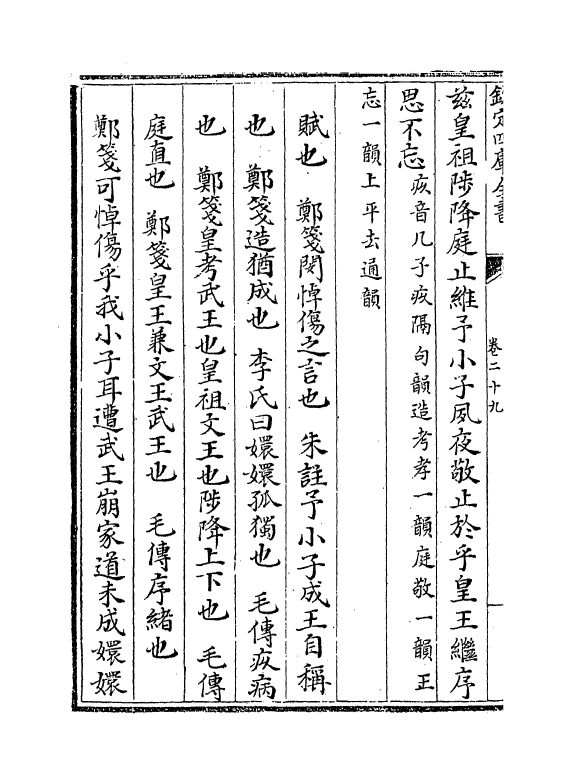 欽定四庫全書
卷二十九
兹皇祖陟降庭止維予小子夙夜敬止於乎皇王繼序
思不忘疚音几子疚隔句韻造考孝一韻庭敬一韻王
忘一韻上平去通韻
賦也　鄭箋閔悼傷之言也　朱註予小子成王自稱
也　鄭箋造猶成也　李氏曰嬛嬛孤獨也　毛傳疚病
也　鄭箋皇考武王也皇祖文王也陟降上下也　毛傳
庭直也　鄭箋皇王兼文王武王也　毛傳序緒也
鄭箋可悼傷乎我小子耳遭武王崩家道未成嬛嬛